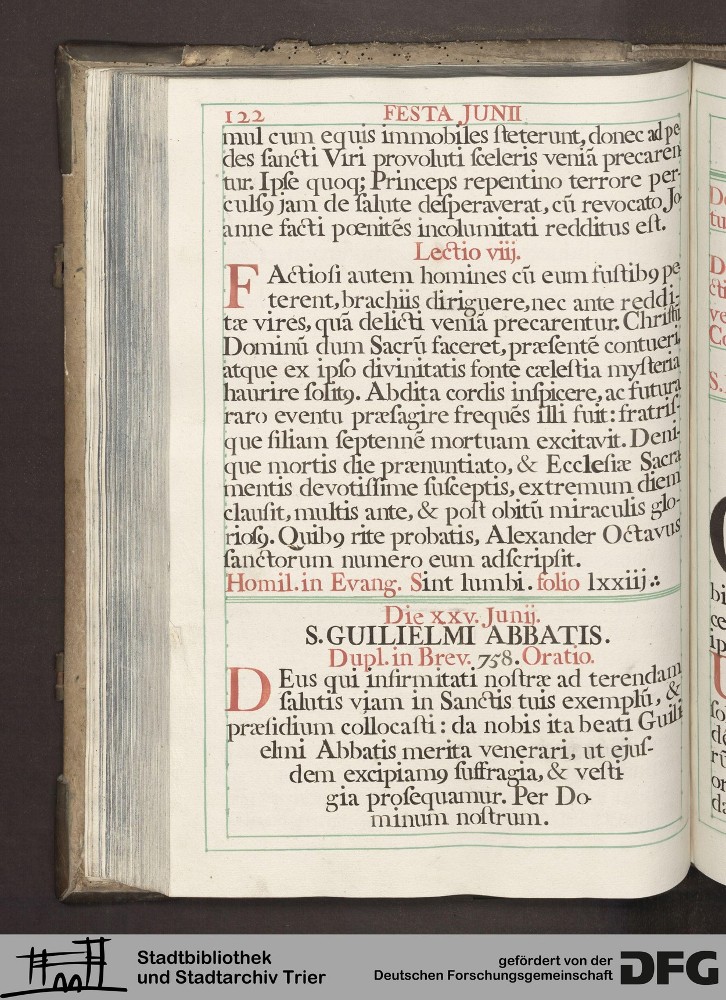 122 FESTA JUNII
mul cum equis immobiles ſteterunt, donec ad pe-
des ſancti Viri provoluti ſceleris veniã precaren
tur. Ipſe quoq; Princeps repentino terrore per-
culſ9 jam de ſalute deſperaverat, cũ revocato Jo
anne facti pœnitẽs incolumitati redditus eſt.
Lectio viij.
FActioſi autem homines cũ eum fuſtib9 pe
terent, brachiis diriguere, nec ante reddi-
tæ vires, quã delicti veniã precarentur. Chriſtũ
Dominũ dum Sacrũ faceret, præſentẽ contueri,
atque ex ipſo divinitatis fonte cæleſtia myſteria
haurire ſolit9. Abdita cordis inſpicere, ac futura
raro eventu præſagire frequẽs illi fuit: fratriſ-
que filiam ſeptennẽ mortuam excitavit. Deni-
que mortis die prænuntiato, & Eccleſiæ Sacra
mentis devotiſſime ſuſceptis, extremum diem
clauſit, multis ante, & poſt obitũ miraculis glo-
rioſ9. Quib9 rite probatis, Alexander Octavus
ſanctorum numero eum adſcripſit.
Homil. in Evang. Sint lumbi. folio lxxiij ∴
Die xxv. Junij.
S. GUILIELMI ABBATIS.
Dupl. in Brev. 758. Oratio.
DEus qui infirmitati noſtræ ad terendam
ſalutis viam in Sanctis tuis exemplũ, &
præſidium collocaſti: da nobis ita beati Guili
elmi Abbatis merita venerari, ut ejuſ-
dem excipiam9 ſuffragia, & veſti
gia proſequamur. Per Do-
minum noſtrum.
Stadtbibliothek
und Stadtarchiv Trier
gefördert von der
Deutschen Forschungsgemeinschaft
DFG